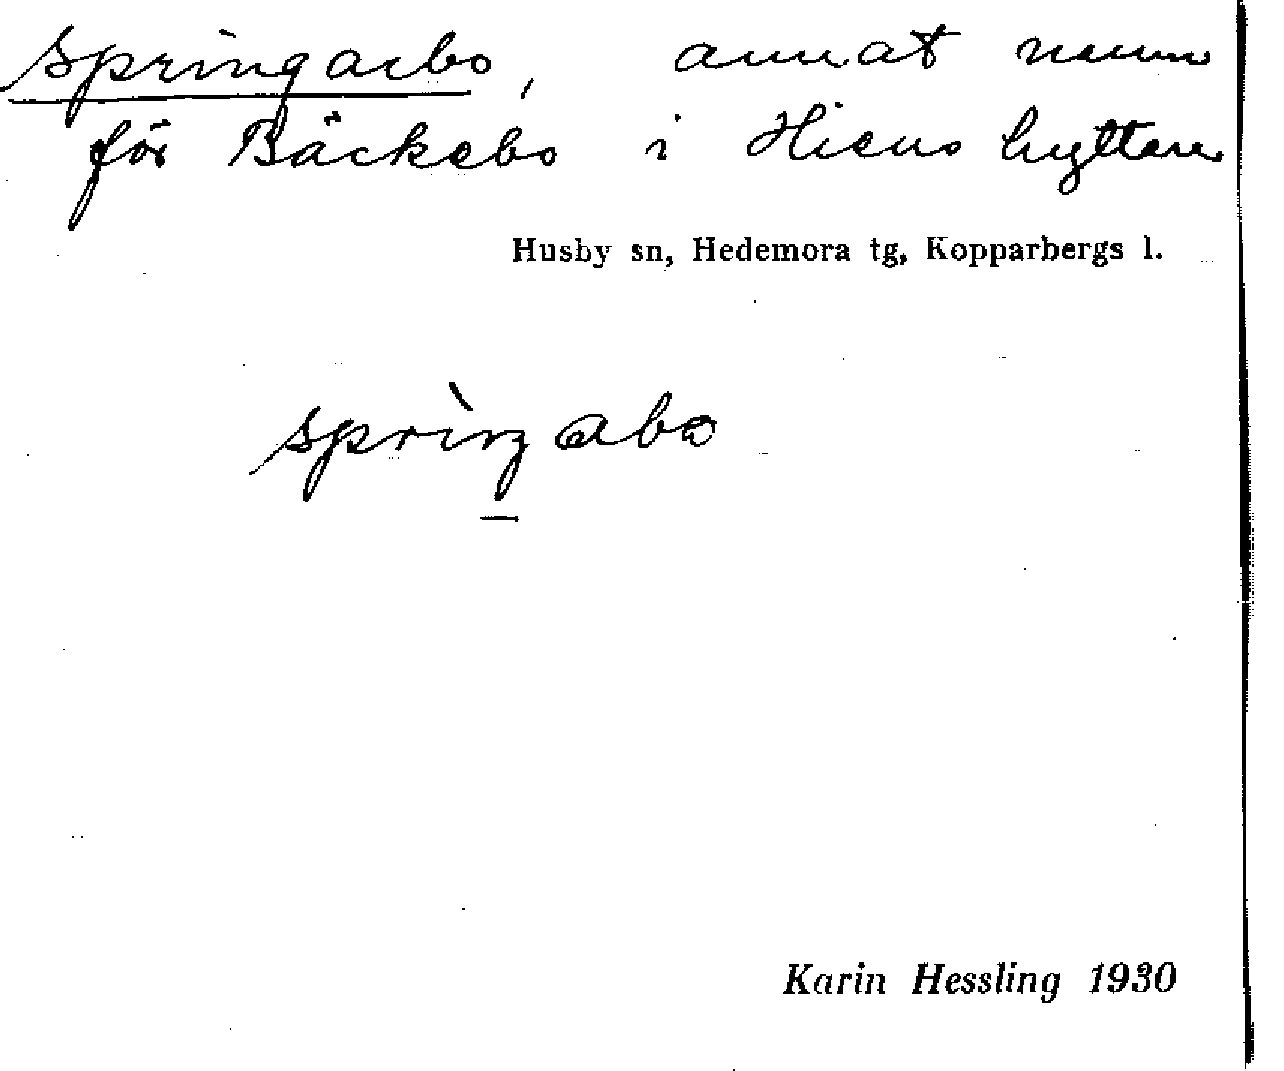 Springarbo, annat namn
för Bäckebo i Hiens hyttan
Husby sn, Hedemora tg, Kopparbergs l.
sprìŋabo
Karin Hessling 1930